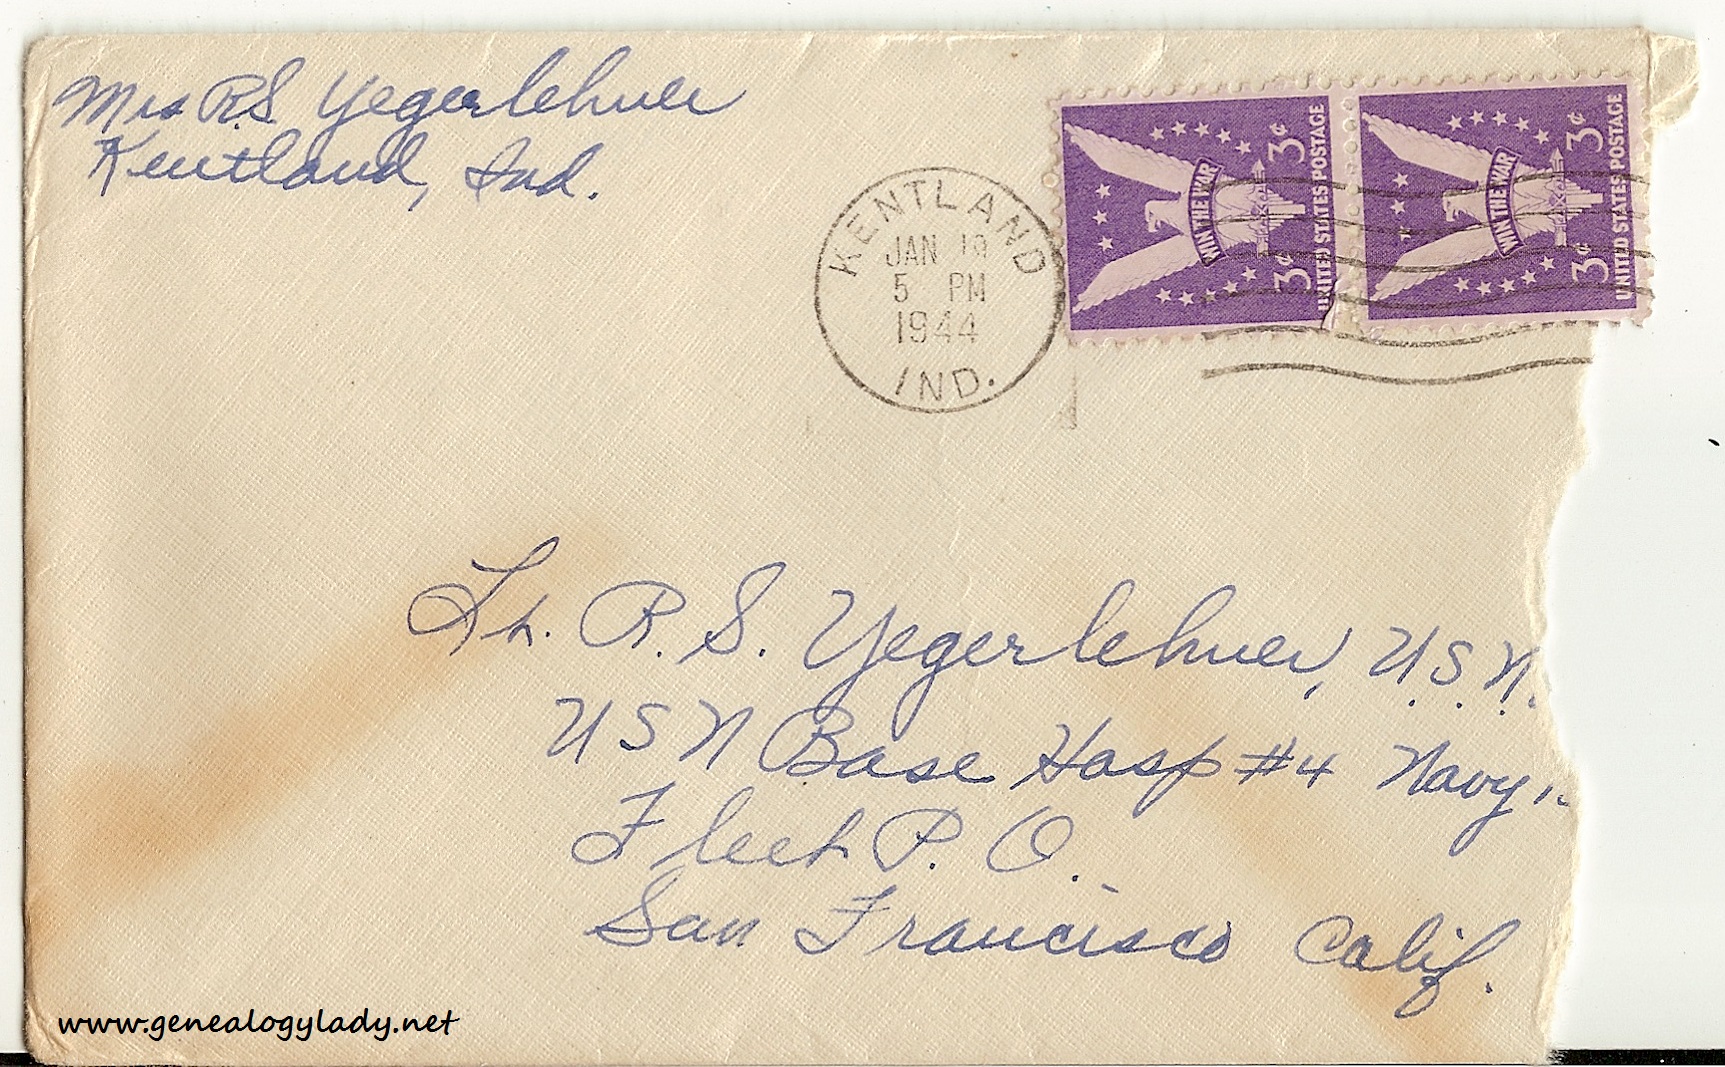 Mrs R.S. Yegerlehner
Kentland, Ind.
KENTLAND
JAN 19
5 PM
1944
IND.
3¢ 3¢
WIN THE WAR
UNITED STATES POSTAGE
3¢ 3¢
WIN THE WAR
UNITED STATES POSTAGE
Lt. R. S. Yegerlehner, U.S.N.
USN Base Hosp #4 Navy
Fleet P. O.
San Francisco Calif.
www.genealogylady.net